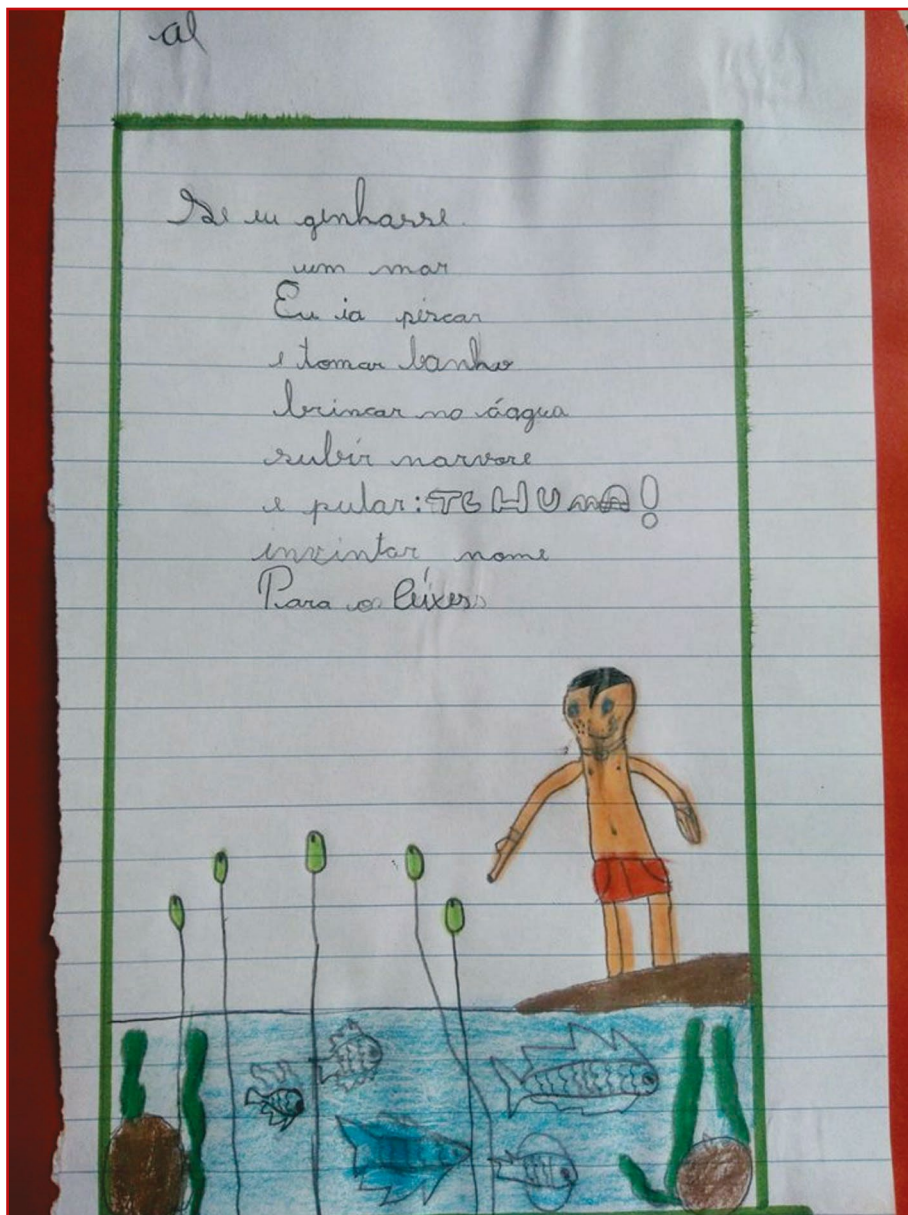 al
Se eu genhasse
um mar
Eu ia péscar
e tomar banho
brincar no áagua
subir narvore
e pular: TCHUmA!
invintar nome
Para os Peíxes